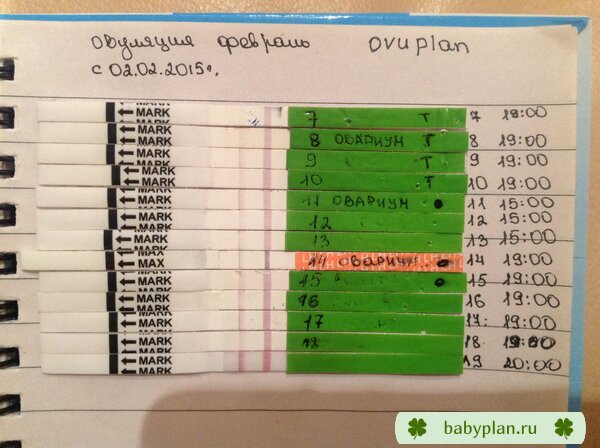 Овуляция февраль ovuplan
с 02.02.2015г.
MARK
MARK 7 T 7 19:00
MARK 8 ОВАРИУМ T 8 19:00
MARK 9 T 9 19:00
MARK 10 T 10 19:00
MARK
MARK 11 ОВАРИУМ 11 15:00
MARK 12 12 15:00
MARK 13 13 15:00
MAX
MAX 14 ОВАРИУМ 14 19:00
MARK 15 15 19:00
MARK 16 16 19:00
MARK 17 17. 19:00
MARK 18 18 19:00
MARK
MARK 19 20:00
babyplan.ru